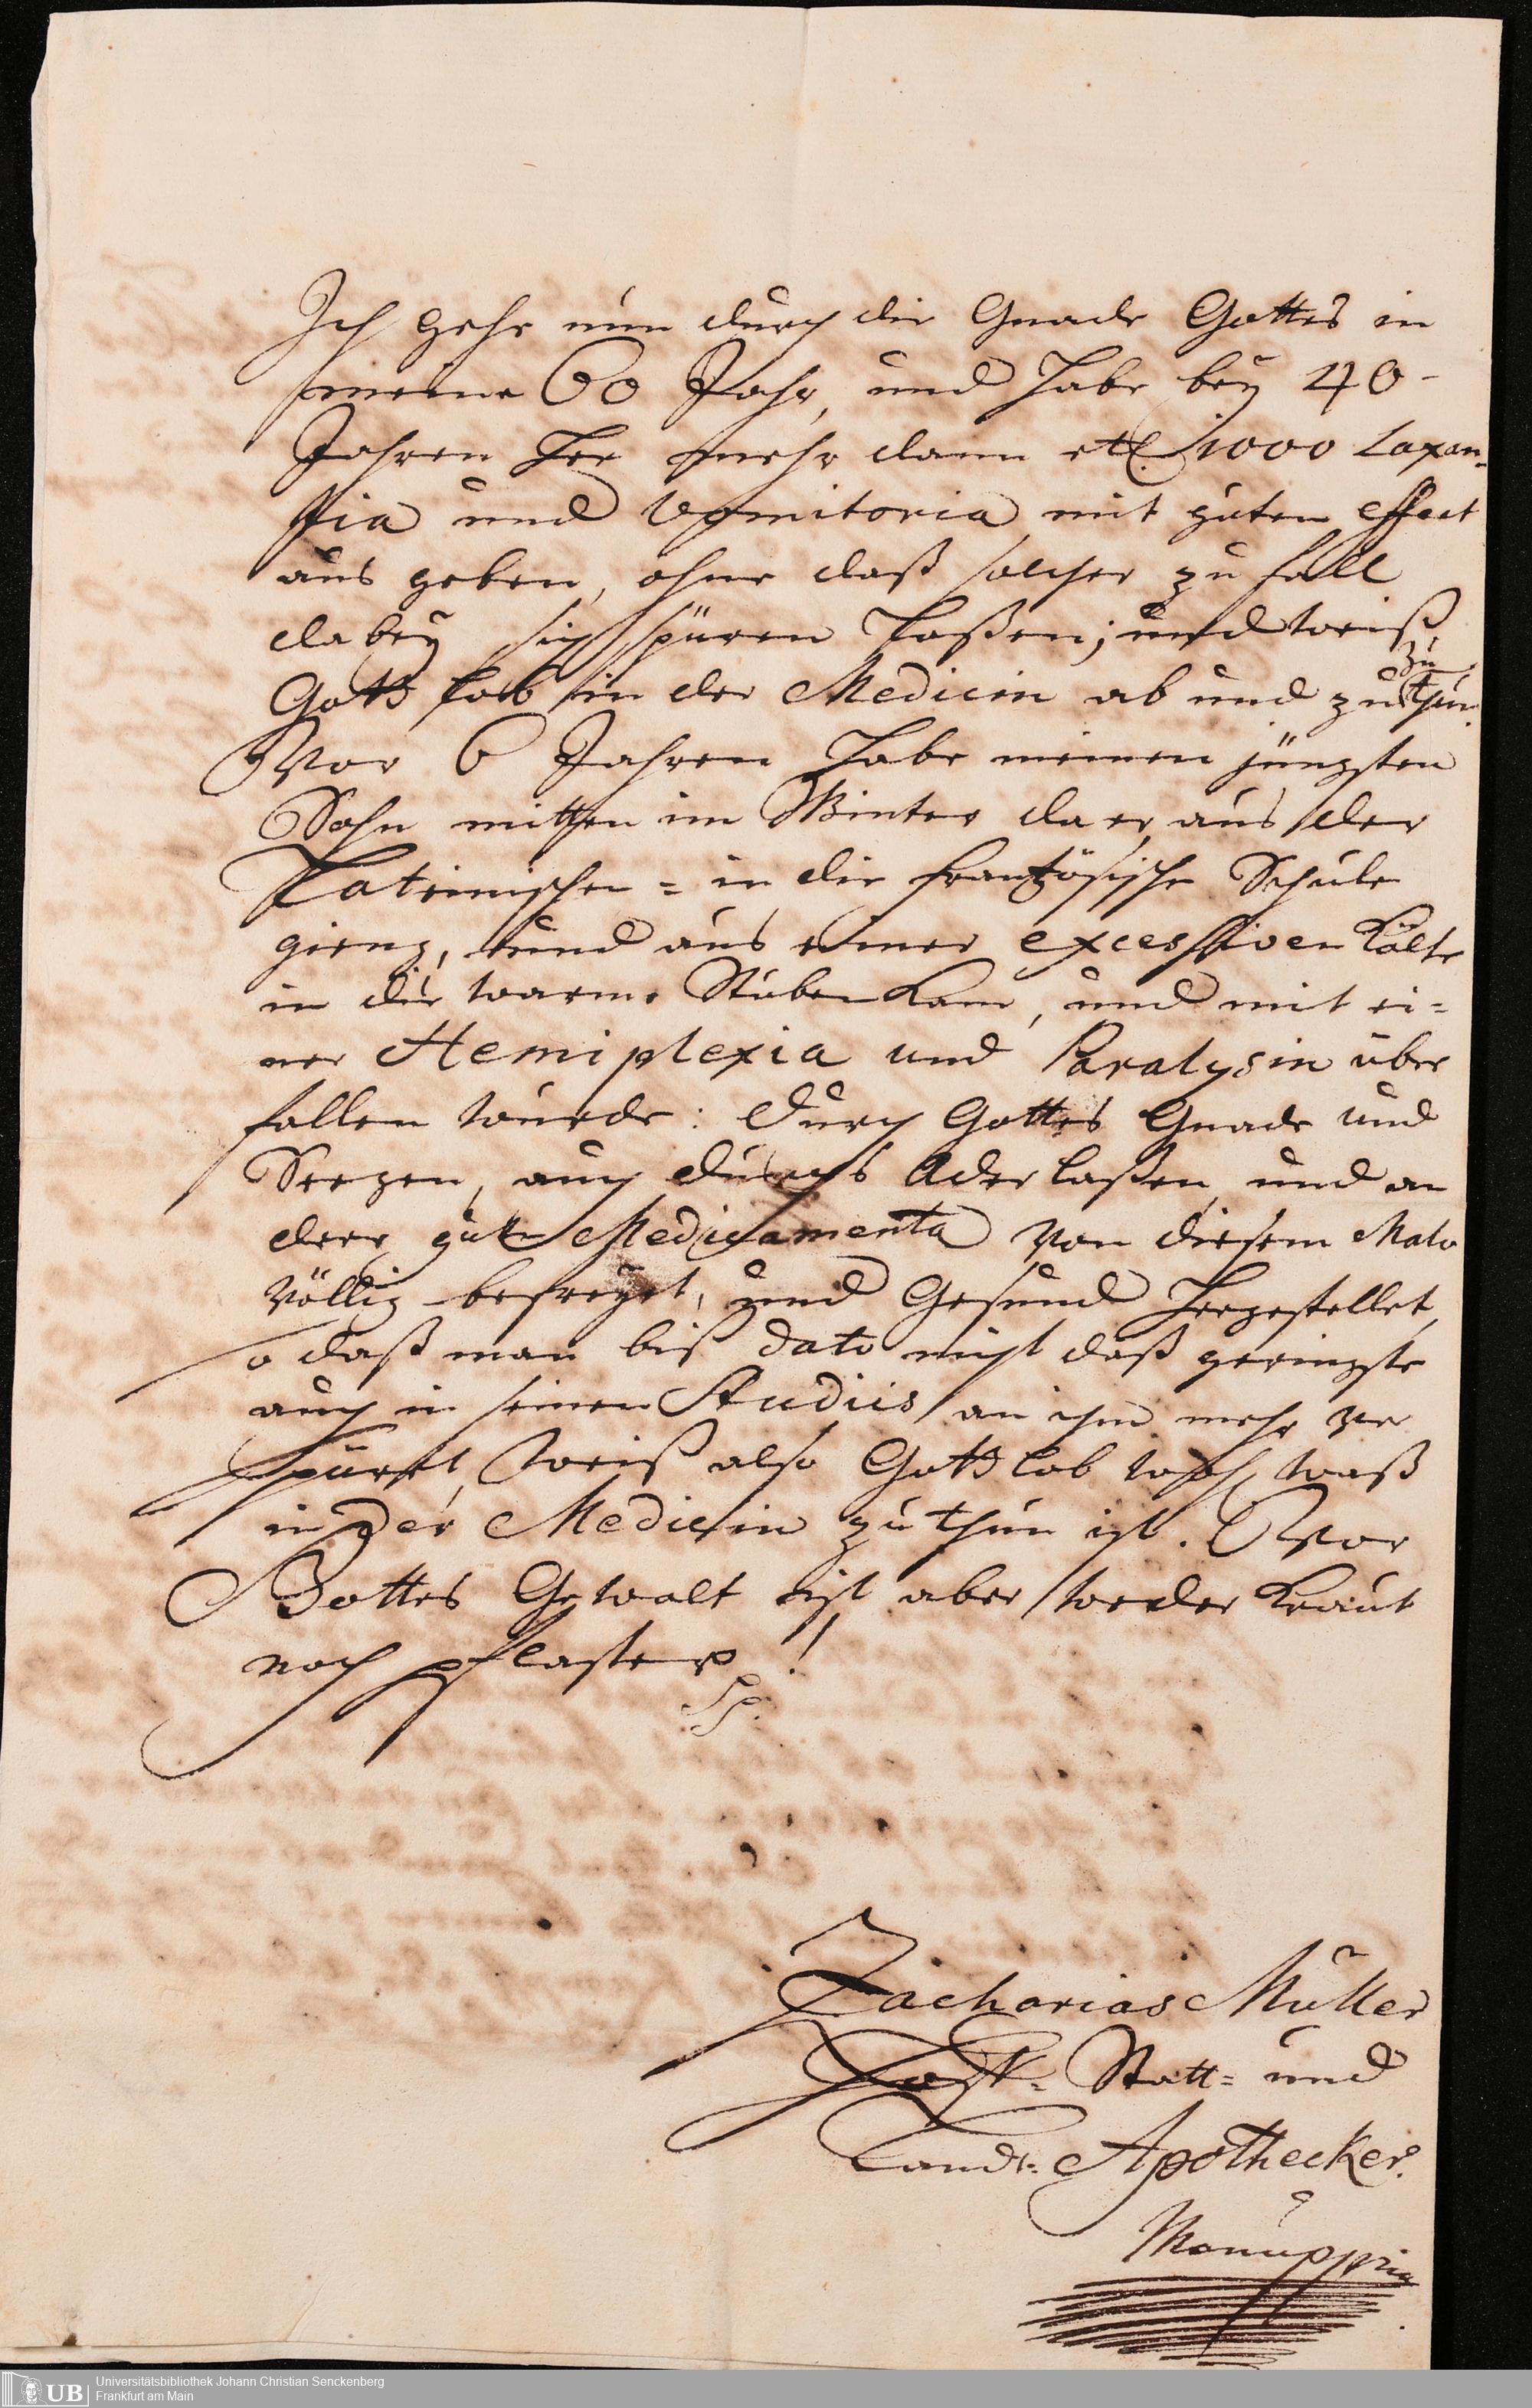 Ich gehe nun durch die Gnade Gottes in
meine 60 Jahr, und habe bey 40
Jahren her mehr dann etl. 1000 Laxan-
tia und Vomitoria mit guten effect
aus geben, ohne daß solcher zu fall
dabey sich spüren laßen; und weiß
Gott lob in der Medicin ab und zu zu thun.
Vor 6 Jahren habe meinen jüngsten
Sohn mitten im Winter da er aus der
Lateinischen = in die frantzösische Schule
gieng, und aus einer excessiven Kälte
in die warme Stuben kam, und mit ei=
ner Hemiplexia und Paralysin über
fallen wurde: durch Gottes Gnade und
Seegen, auch durchs Aderlaßen und an
dere gute Medicamenta von diesem Malo
völlig befreyet, und Gesund hergestellet,
so daß man biß dato nicht daß geringste
auch in seinen Studiis an ihm mehr ge
spüret, weiß also Gott lob wohl, waß
in der Medicin zu thun ist. Vor
Gottes Gewalt ist aber weder Kraut
noch pflaster!
Zacharias Müller
Hoff- Statt= und
Landt= Apothecker.
Manuppria
Universitätsbibliothek Johann Christian Senckenberg
Frankfurt am Main
UB